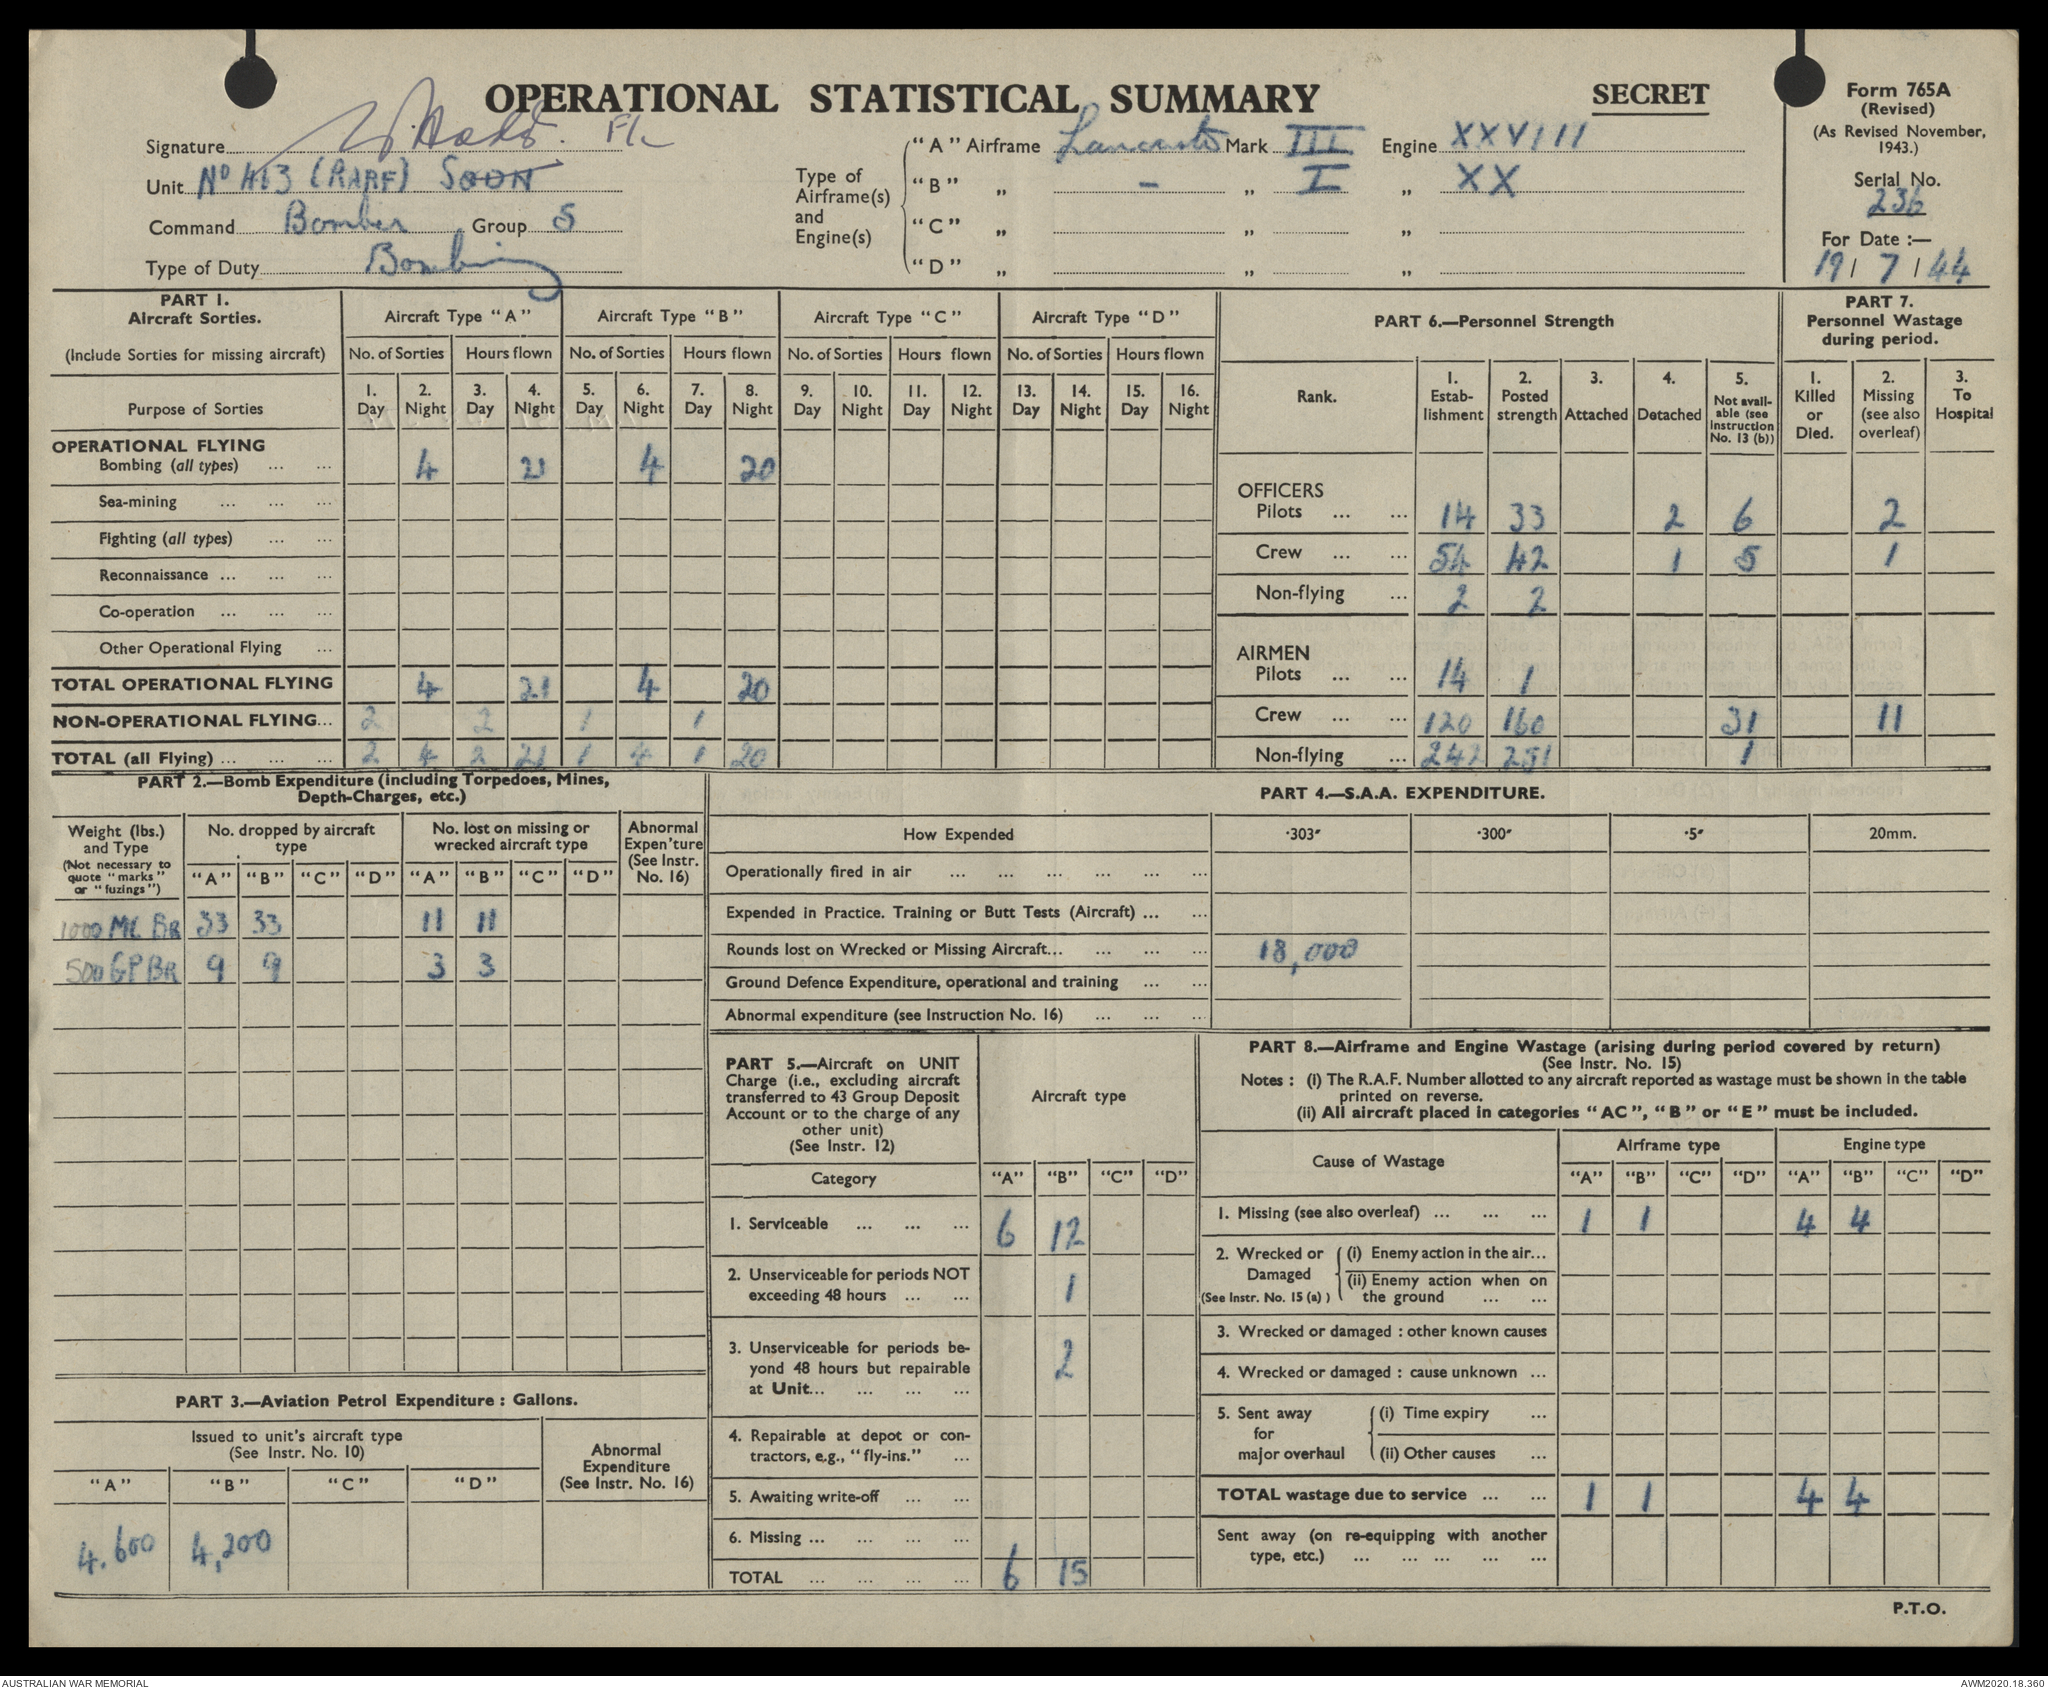 OPERATIONAL STATISTICAL SUMMARY
SECRET
Form 765A
(Revised)
(As Revised November, 1943.)
Serial No.
236
For Date :—
19 / 7 / 44
Signature
Unit No 463 (RAAF) SQDN
Command Bomber Group 5
Type of Duty Bombing
Type of Airframe(s) and Engine(s)
"A" Airframe Lancaster Mark III Engine XXVIII
"B" „ - „ I „ XX
"C" „ „ „
"D" „ „ „
PART 1.
Aircraft Sorties.
(Include Sorties for missing aircraft)
Aircraft Type "A" Aircraft Type "B" Aircraft Type "C" Aircraft Type "D"
No. of Sorties Hours flown No. of Sorties Hours flown No. of Sorties Hours flown No. of Sorties Hours flown
Purpose of Sorties
1. Day 2. Night 3. Day 4. Night 5. Day 6. Night 7. Day 8. Night 9. Day 10. Night 11. Day 12. Night 13. Day 14. Night 15. Day 16. Night
OPERATIONAL FLYING
Bombing (all types) ... ... 4 21 4 20
Sea-mining ... ... ...
Fighting (all types) ... ...
Reconnaissance ... ... ...
Co-operation ... ... ...
Other Operational Flying ...
TOTAL OPERATIONAL FLYING 4 21 4 20
NON-OPERATIONAL FLYING... 2 2 1 1
TOTAL (all Flying) ... ... ... 2 4 2 21 1 4 1 20
PART 6.—Personnel Strength
Rank.
1. Estab-lishment
2. Posted strength
3. Attached
4. Detached
5. Not avail-able (see Instruction No. 13 (b))
PART 7.
Personnel Wastage during period.
1. Killed or Died.
2. Missing (see also overleaf)
3. To Hospital
OFFICERS
Pilots ... ... 14 33 2 6 2
Crew ... ... 54 42 1 5 1
Non-flying ... 2 2
AIRMEN
Pilots ... ... 14 1
Crew ... ... 120 160 31 11
Non-flying ... 242 251 1
PART 2.—Bomb Expenditure (including Torpedoes, Mines,
Depth-Charges, etc.)
Weight (lbs.) and Type
(Not necessary to quote "marks" or "fuzings")
No. dropped by aircraft type
No. lost on missing or wrecked aircraft type
Abnormal Expen'ture (See Instr. No. 16)
"A" "B" "C" "D" "A" "B" "C" "D"
1000 MC BR 33 33 11 11
500 GP BR 9 9 3 3
PART 3.—Aviation Petrol Expenditure : Gallons.
Issued to unit's aircraft type
(See Instr. No. 10)
Abnormal Expenditure (See Instr. No. 16)
"A" "B" "C" "D"
4.600 4,200
PART 4.—S.A.A. EXPENDITURE.
How Expended ·303" ·300" ·5" 20mm.
Operationally fired in air ... ... ... ... ... ...
Expended in Practice. Training or Butt Tests (Aircraft) ... ...
Rounds lost on Wrecked or Missing Aircraft... ... ... ... 18,000
Ground Defence Expenditure, operational and training ... ...
Abnormal expenditure (see Instruction No. 16) ... ... ...
PART 5.—Aircraft on UNIT
Charge (i.e., excluding aircraft
transferred to 43 Group Deposit
Account or to the charge of any
other unit)
(See Instr. 12)
Aircraft type
Category "A" "B" "C" "D"
1. Serviceable ... ... ... 6 12
2. Unserviceable for periods NOT
exceeding 48 hours ... ... 1
3. Unserviceable for periods be-
yond 48 hours but repairable
at Unit... ... ... ... 2
4. Repairable at depot or con-
tractors, e.g., "fly-ins." ...
5. Awaiting write-off ... ...
6. Missing ... ... ... ...
TOTAL ... ... ... ... 6 15
PART 8.—Airframe and Engine Wastage (arising during period covered by return)
(See Instr. No. 15)
Notes : (i) The R.A.F. Number allotted to any aircraft reported as wastage must be shown in the table
printed on reverse.
(ii) All aircraft placed in categories "AC", "B" or "E" must be included.
Cause of Wastage Airframe type Engine type
"A" "B" "C" "D" "A" "B" "C" "D"
1. Missing (see also overleaf) ... ... ... 1 1 4 4
2. Wrecked or Damaged (See Instr. No. 15 (a) )
(i) Enemy action in the air...
(ii) Enemy action when on
the ground ... ...
3. Wrecked or damaged : other known causes
4. Wrecked or damaged : cause unknown ...
5. Sent away for major overhaul
(i) Time expiry ...
(ii) Other causes ...
TOTAL wastage due to service ... ... 1 1 4 4
Sent away (on re-equipping with another
type, etc.) ... ... ... ... ...
P.T.O.
AUSTRALIAN WAR MEMORIAL
AWM2020.18.360